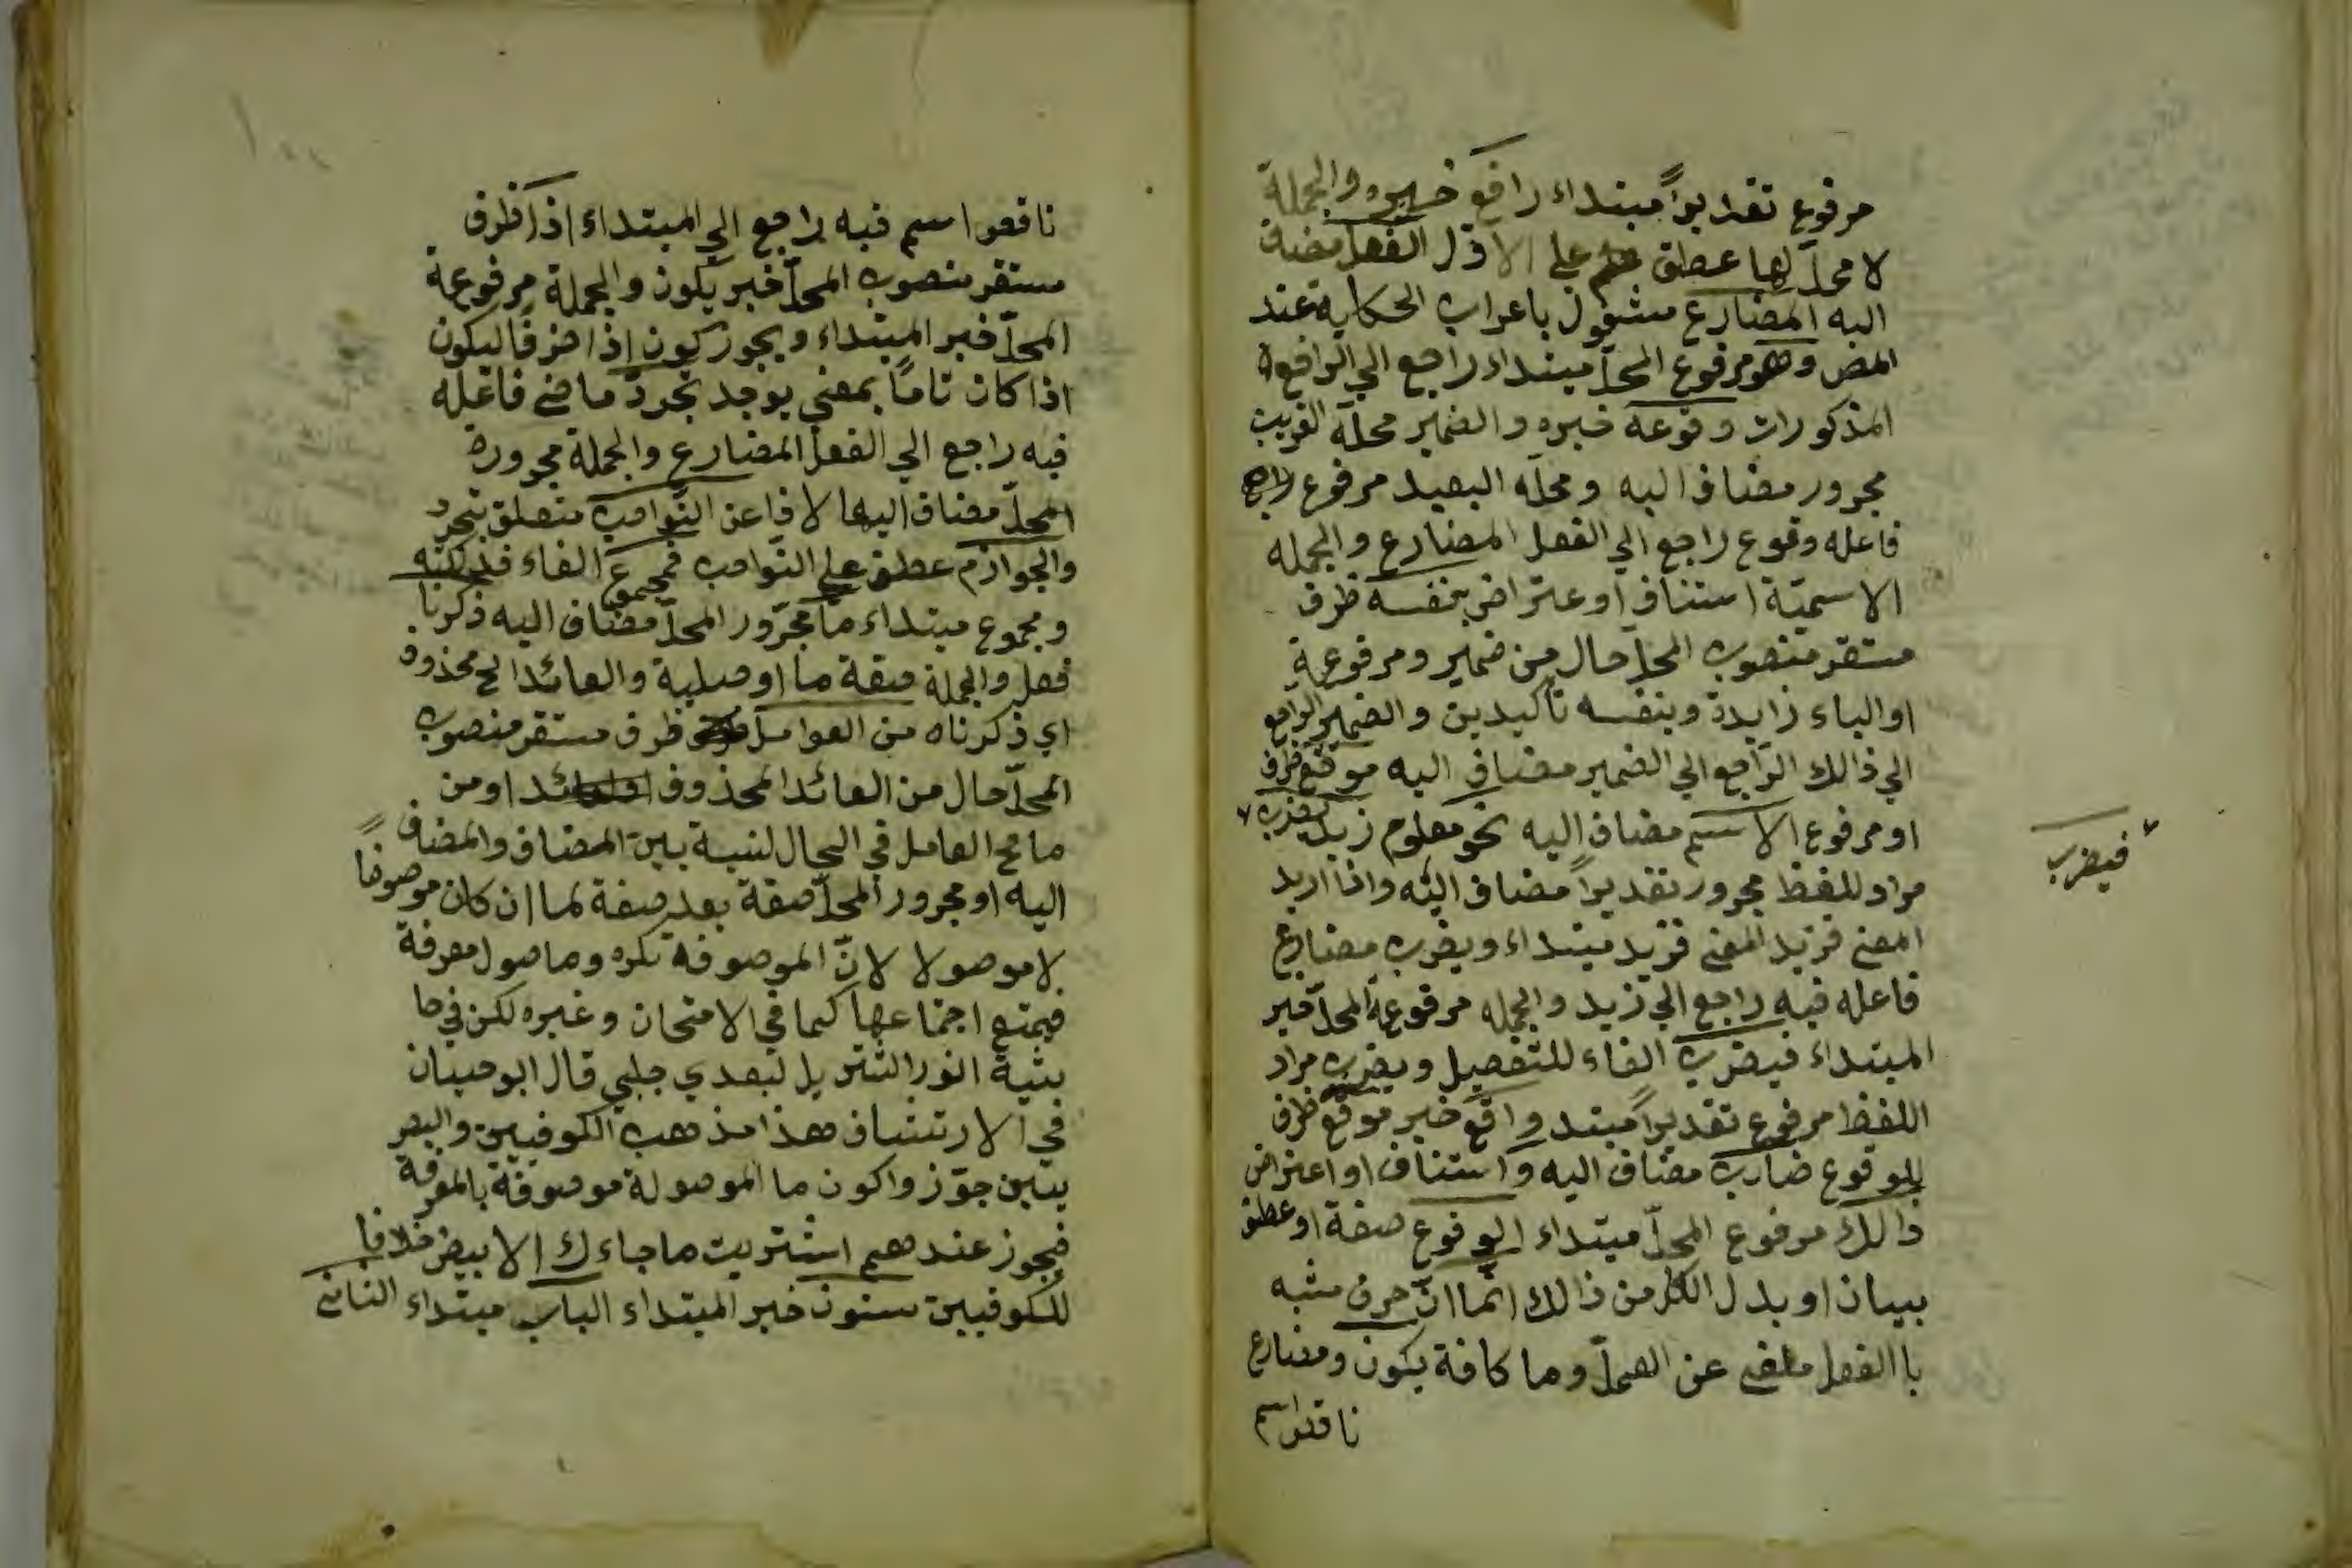 مرفوع تقديراً مبتداء رافع خبره والجملة
لا محلّ لها عطف علي الاوّل الفعل مضاف
اليه المضارع مشغول باعراب الحكاية عند
المص وهو مرفوع المحلّ مبتداء راجع الي الرافع
المذكورات وقوعه خبره والضمير محلّه القريب
مجرور مضاف اليه ومحلّه البعيد مرفوع
فاعله وقوع راجع الي الفعل المضارع والجمله
الاسميّة استناف او عتراض بنفسه ظرف
مستقر منصوب المحلّ حال من ضمير ومرفوعة
او الباء زايدة وبنفسه تأكيدين والضمير الراجع
الي ذالك الرّاجع الي الضمير مضاف اليه موقع ظرف
او مرفوع الاسم مضاف اليه نحو معلوم زيد يضرب
فيضرب
مراد للفظ مجرور تقديراً مضاف اليه واذا اريد
المعني فزيد مبتداء ويضرب مضارع
فاعله فيه راجع الي زيد والجمله مرفوعة المحلّ خبر
المبتداء فيضرب الفاء للتفصيل ويضرب مراد
اللفظ مرفوع تقديراً مبتد واقع خبر موقع ظرف
للوقوع ضارب مضاف اليه واستناف او اعتراض
ذالك مرفوع المحلّ مبتداء الوقوع صفة او عطف
بيان او بدل الكل من ذالك انّما انّ حرف مشبه
با الفعل ملغي عن العمل وما كافة يكون ومضارع
ناقص اسم
ناقص اسم فيه راجع الي المبتداء اذا ظرف
مستقر منصوب المحلّ خبر يكون والجملة مرفوعة
المحلّ خبر المبتداء ويجوز كون اذا ظرفًا ليكون
اذا كان تامًا بمعني يوجد تجرّد ماضي فاعله
فيه راجع الي الفعل المضارع والجملة مجرورة
المحلّ مضاف اليها لاذا عن النّواصب متعلق بتجرد
والجوازم عطف علي النّواصب فمجموع الفاء فذلكته
ومجموع مبتداء ما مجرّور المحلّ مضاف اليه ذكرنا
فعل والجملة صفة ما او صلية والعائد الخ محذوف
اي ذكرناه من العوامل ظرف مستقر منصوب
المحلّ حال من العائد المحذوف او من
ما مح العامل في الحال لنسبة بين المضاف والمضاف
اليه او مجرور المحلّ صفة بعد صفة لما ان كان موصوفاً
لا موصولا لانّ الموصوفة نكره وماصول معرفة
فيمتع اجتماعها كما في الامتحان وغيره لكن في حا
شية انور التنزيل لسعدي جلبي قال ابو حيان
في الارتشاف هذا مذهب الكوفيين والبصر
يين جوّزوا كون ما الموصولة موصوفة بالمعرفة
فيجوز عندهم اشتريت ما جاءك الا بيض خلافا
للكوفيين ستون خبر المبتداء الباب مبتداء الثاني